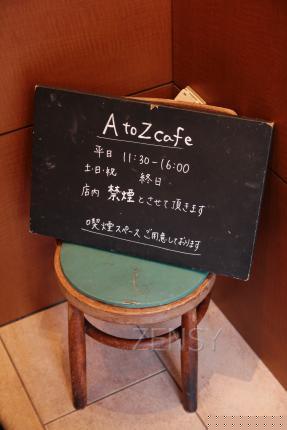 A to Z cafe
平日 11:30-16:00
土・日・祝 終日
店内 禁煙とさせて頂きます
○喫煙スペースご用意しております
ZENSY